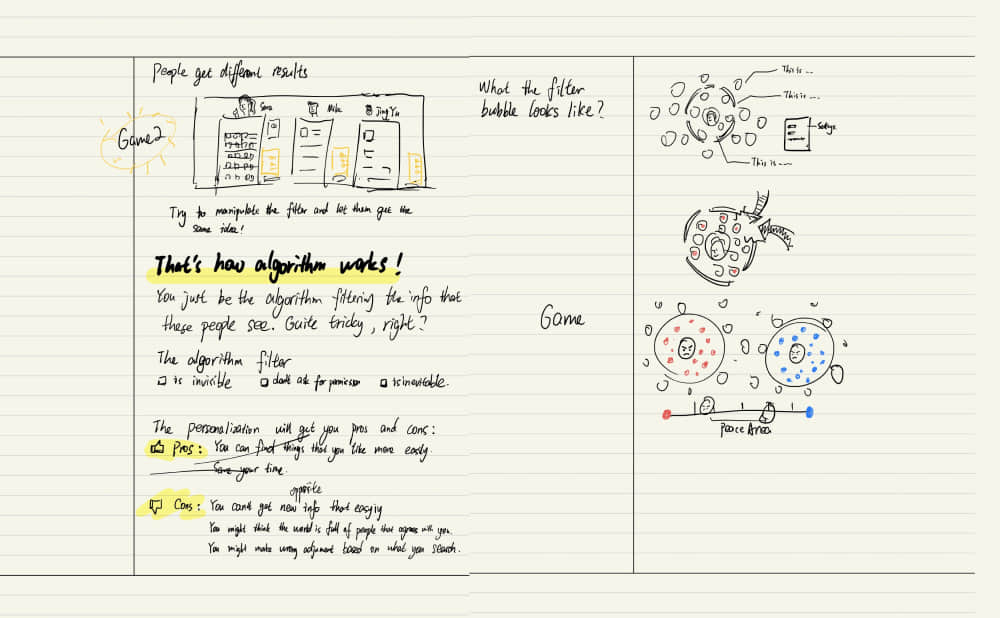 People get different results
Game 2
Sara
Mike
Jing Yu
Try to manipulate the filter and let them get the
same idea!
That's how algorithm works!
You just be the algorithm filtering the info that
these people see. Quite tricky, right?
The algorithm filter
is invisible
don't ask for permission
is inevitable.
The personalization will get you pros and cons:
Pros: You can find things that you like more easily.
Save your time.
opposite
Cons: You can't get new info that easily
You might think the world is full of people that agrees with you.
You might make wrong adjument based on what you search.
What the filter
bubble looks like?
This is ...
This is ...
This is ...
Game
Peace Area